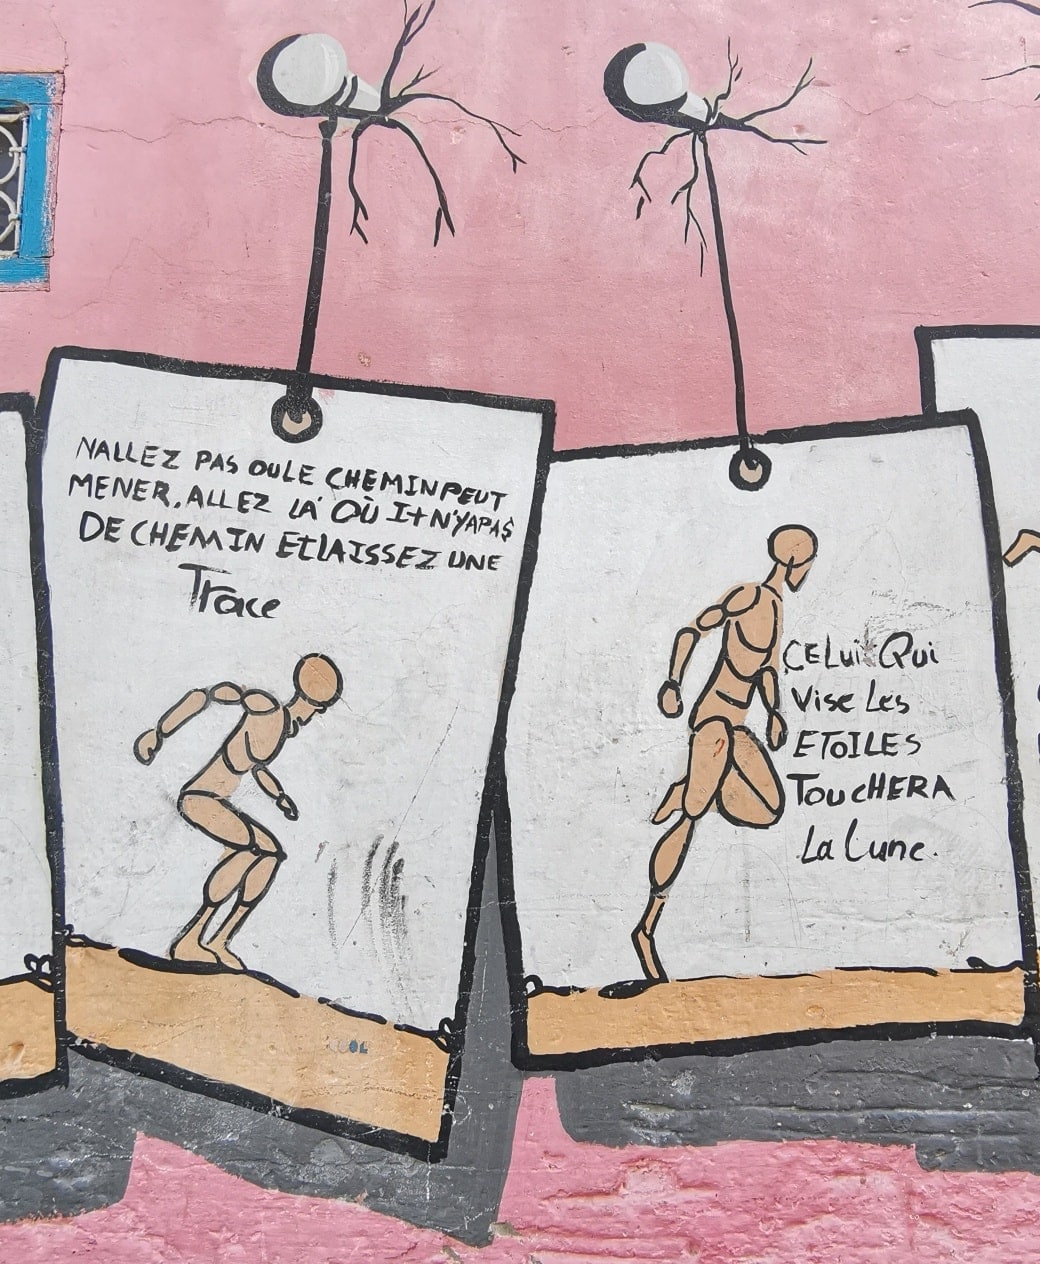 NALLEZ PAS OULE CHEMIN PEUT
MENER, ALLEZ LÀ OÙ IL N'YAPAS
DE CHEMIN ET LAISSEZ UNE
Trace
CELui Qui
Vise Les
ETOILES
TOUCHERA
La Lune.